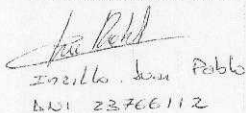 Inzillo. Juan Pablo
DNI 23.766112